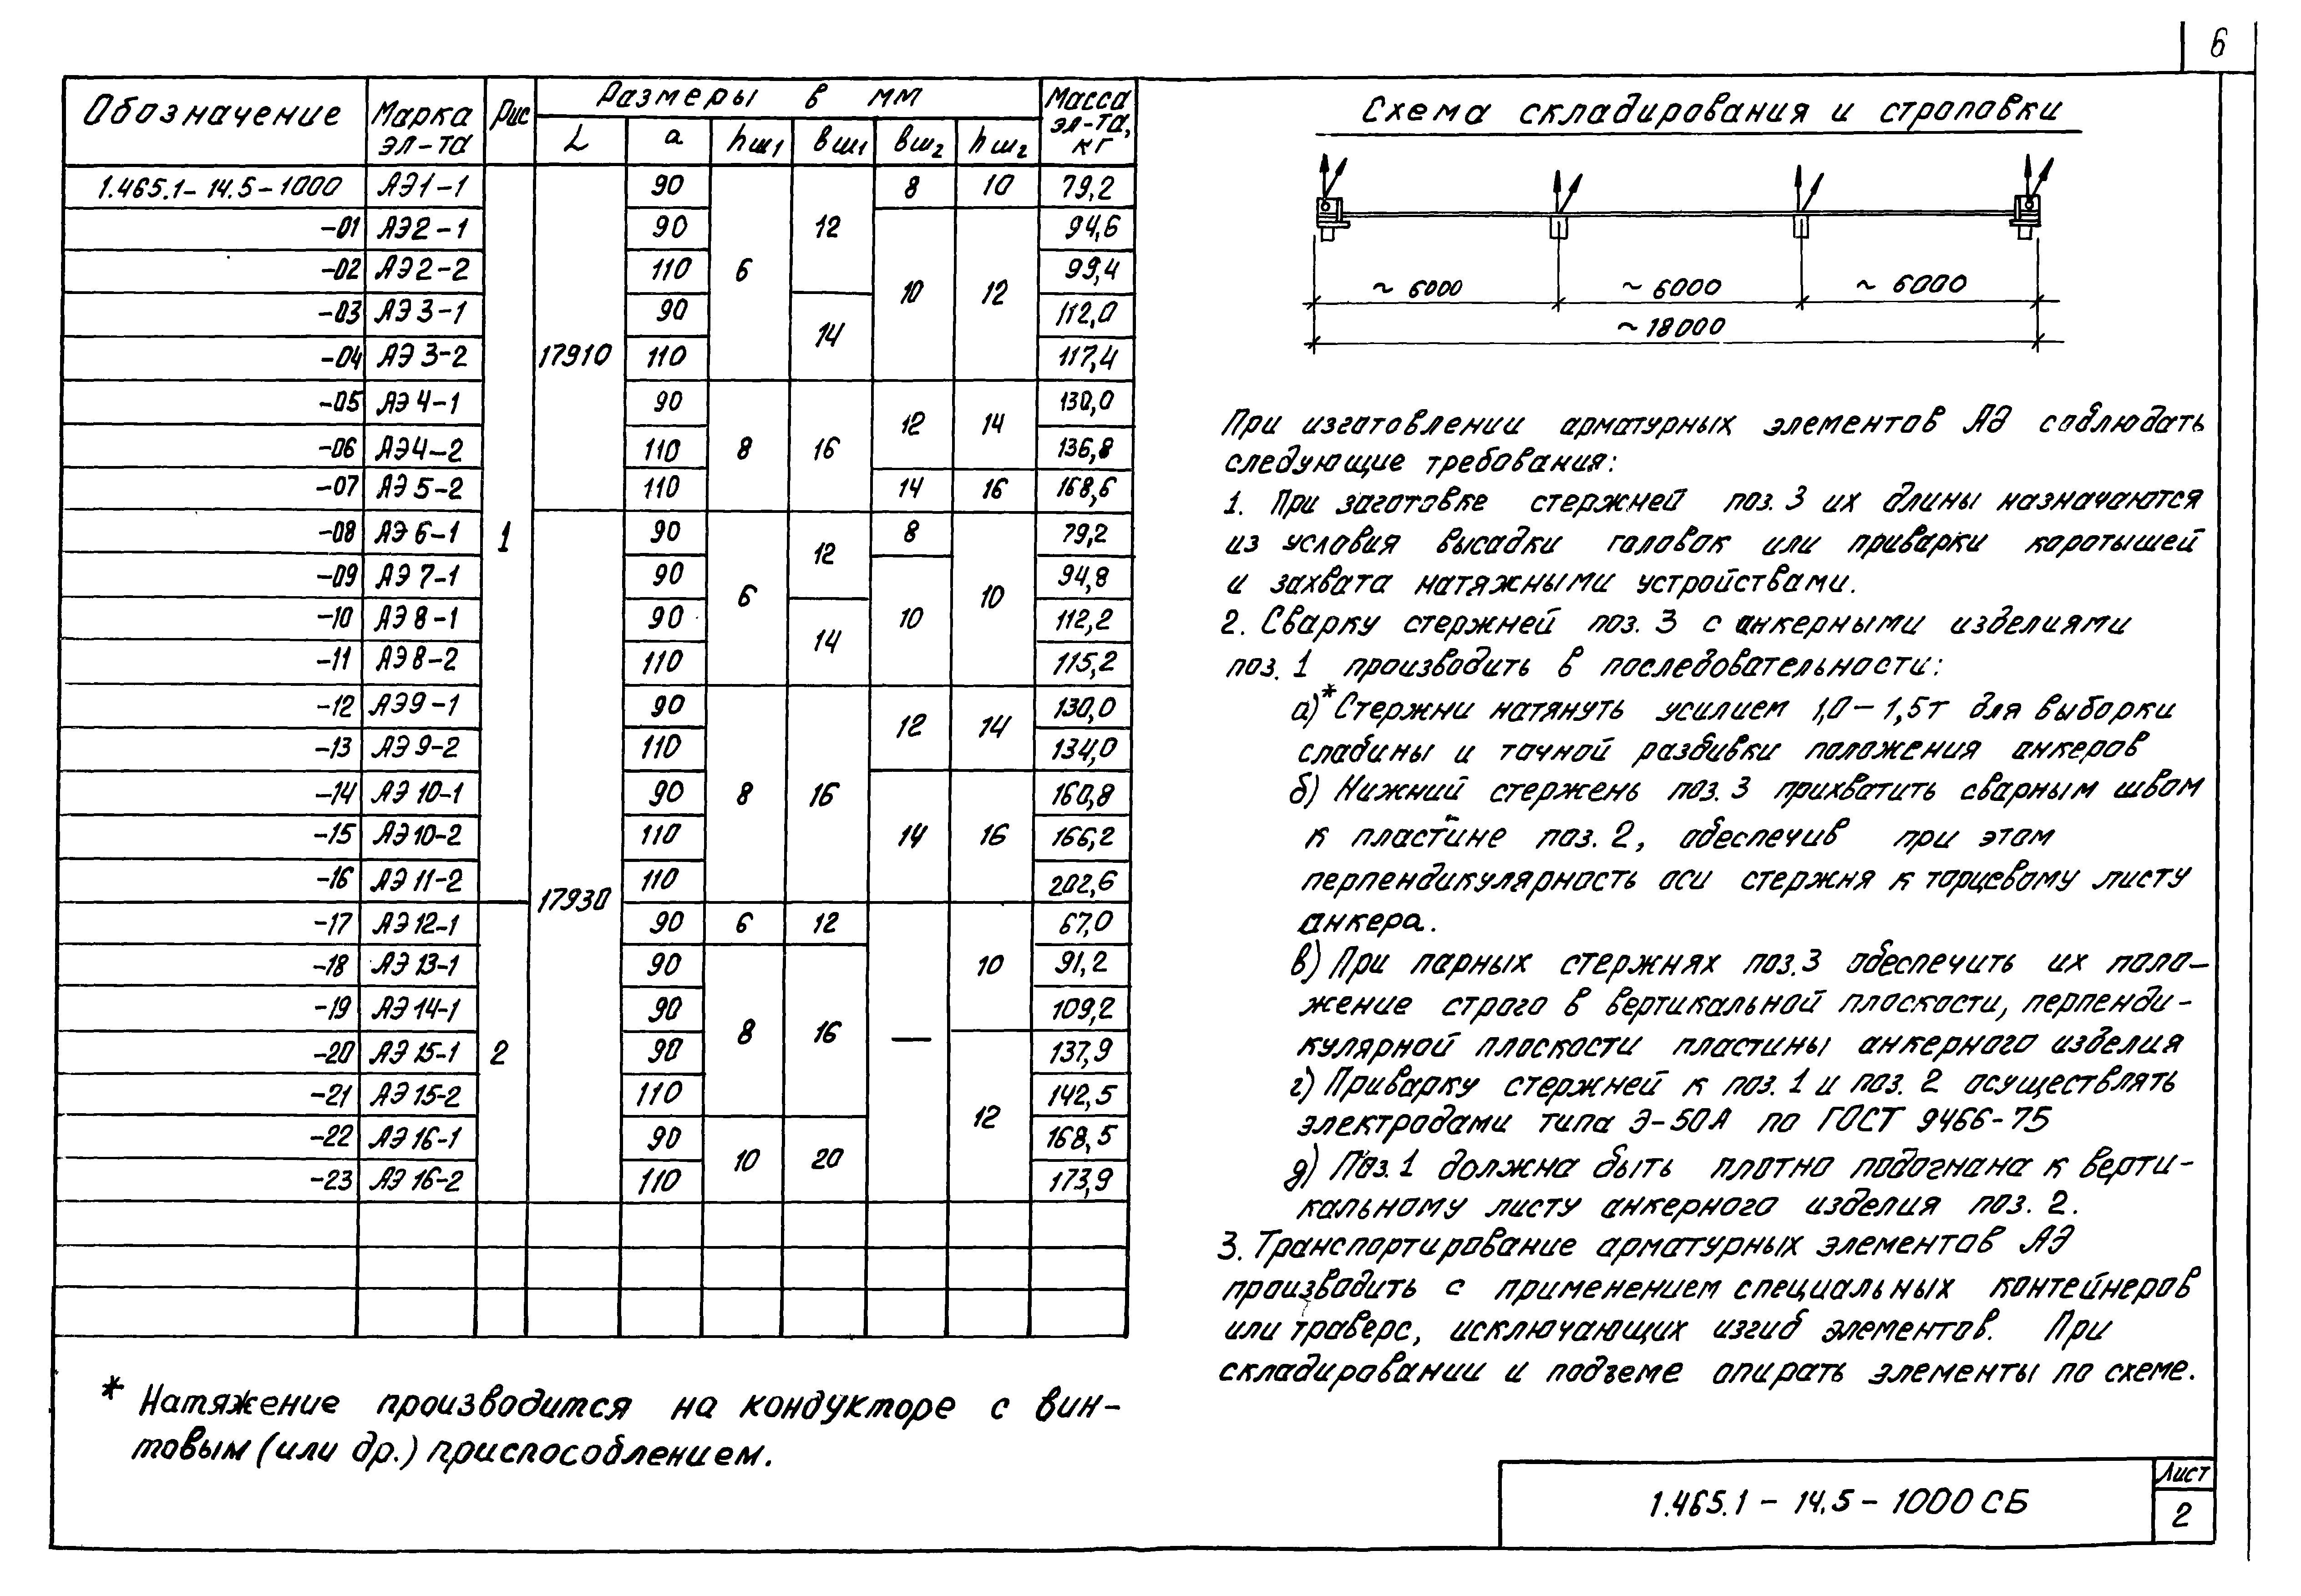 6
Обозначение Марка эл-та Рис Размеры в мм Масса эл-та, кг
L a hш1 вш1 вш2 hш2
1.465.1-14.5-1000 АЭ1-1 90 8 10 79,2
-01 АЭ2-1 90 12 94,6
-02 АЭ2-2 110 6 99,4
-03 АЭ3-1 90 10 12 112,0
-04 АЭ3-2 17910 110 14 117,4
-05 АЭ4-1 90 130,0
-06 АЭ4-2 110 8 16 12 14 136,8
-07 АЭ5-2 110 14 16 168,6
-08 АЭ6-1 1 90 8 79,2
-09 АЭ7-1 90 12 94,8
-10 АЭ8-1 90 6 10 10 112,2
-11 АЭ8-2 110 14 115,2
-12 АЭ9-1 90 130,0
-13 АЭ9-2 110 12 14 134,0
-14 АЭ10-1 90 8 16 160,8
-15 АЭ10-2 110 14 16 166,2
-16 АЭ11-2 17930 110 202,6
-17 АЭ12-1 90 6 12 67,0
-18 АЭ13-1 90 10 91,2
-19 АЭ14-1 90 8 16 — 109,2
-20 АЭ15-1 2 90 137,9
-21 АЭ15-2 110 12 142,5
-22 АЭ16-1 90 168,5
-23 АЭ16-2 110 10 20 173,9
* Натяжение производится на кондукторе с вин-
товым (или др.) приспособлением.
Схема складирования и строповки
~6000 ~6000 ~6000
~18000
При изготовлении арматурных элементов АЭ соблюдать
следующие требования:
1. При заготовке стержней поз. 3 их длины назначаются
из условия высадки головок или приварки коротышей
и захвата натяжными устройствами.
2. Сварку стержней поз. 3 с анкерными изделиями
поз. 1 производить в последовательности:
а)* Стержни натянуть усилием 1,0-1,5т для выборки
слабины и точной разбивки положения анкеров
б) Нижний стержень поз. 3 прихватить сварным швом
к пластине поз. 2, обеспечив при этом
перпендикулярность оси стержня к торцевому листу
анкера.
в) При парных стержнях поз. 3 обеспечить их поло-
жение строго в вертикальной плоскости, перпенди-
кулярной плоскости пластины анкерного изделия
г) Приварку стержней к поз. 1 и поз. 2 осуществлять
электродами типа Э-50А по ГОСТ 9466-75
д) Поз. 1 должна быть плотно подогнана к верти-
кальному листу анкерного изделия поз. 2.
3. Транспортирование арматурных элементов АЭ
производить с применением специальных контейнеров
или траверс, исключающих изгиб элементов. При
складировании и подъеме опирать элементы по схеме.
1.465.1-14.5-1000 СБ
Лист
2